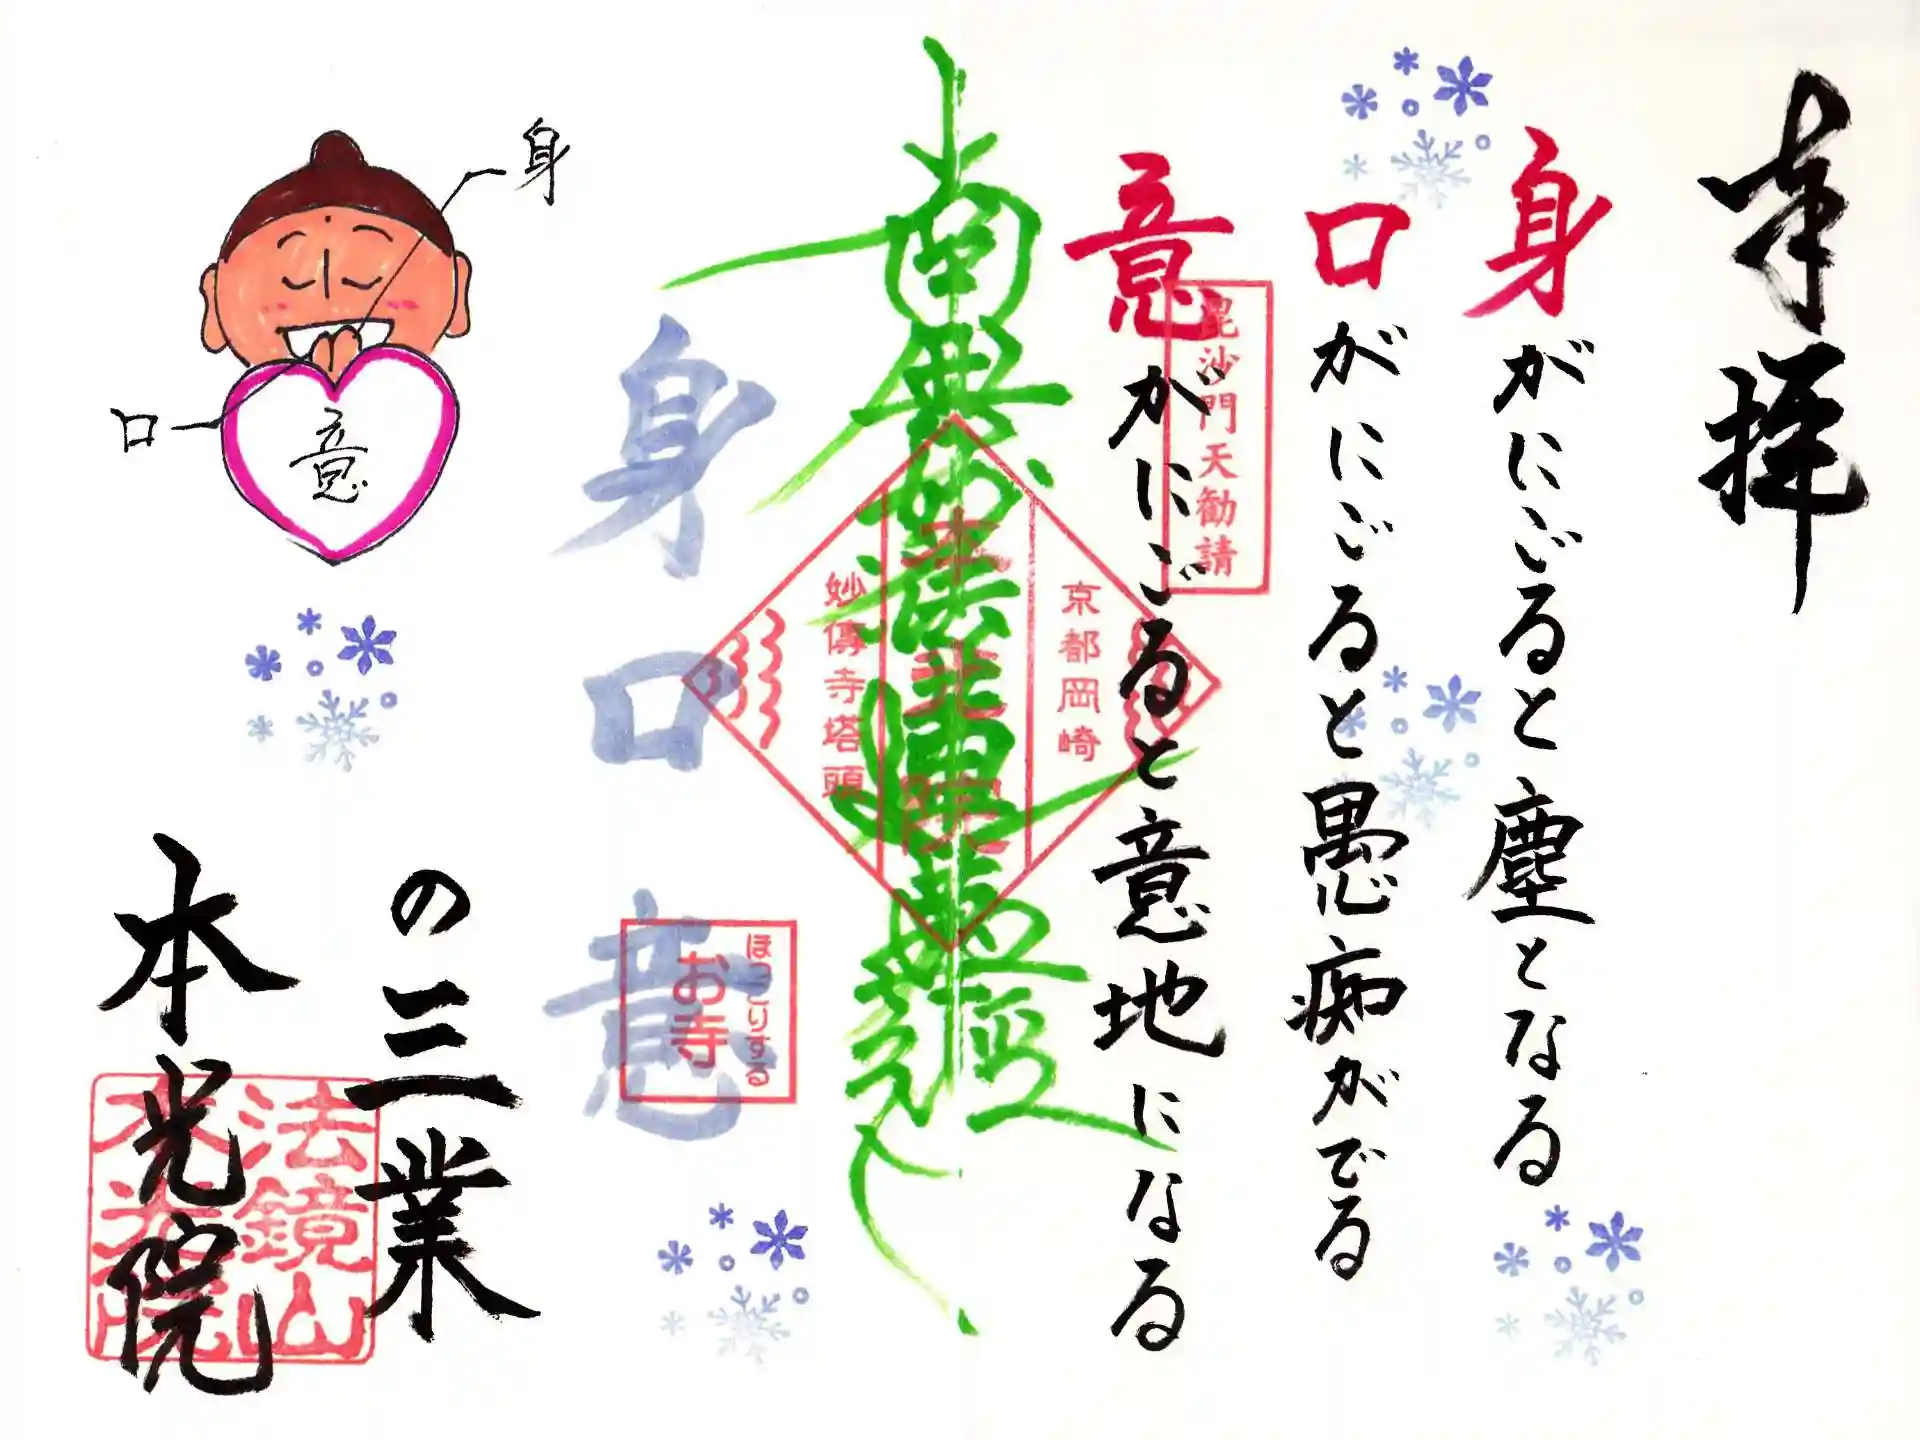 奉拝
身がにごると塵となる
口がにごると愚痴がでる
意がにごると意地になる
毘沙門天勧請
南無妙法蓮華経
京都岡崎
本光院
妙傳寺塔頭
身口意
ほっこりする
お寺
の三業
本光院
法鏡山
本光院
身
口
意